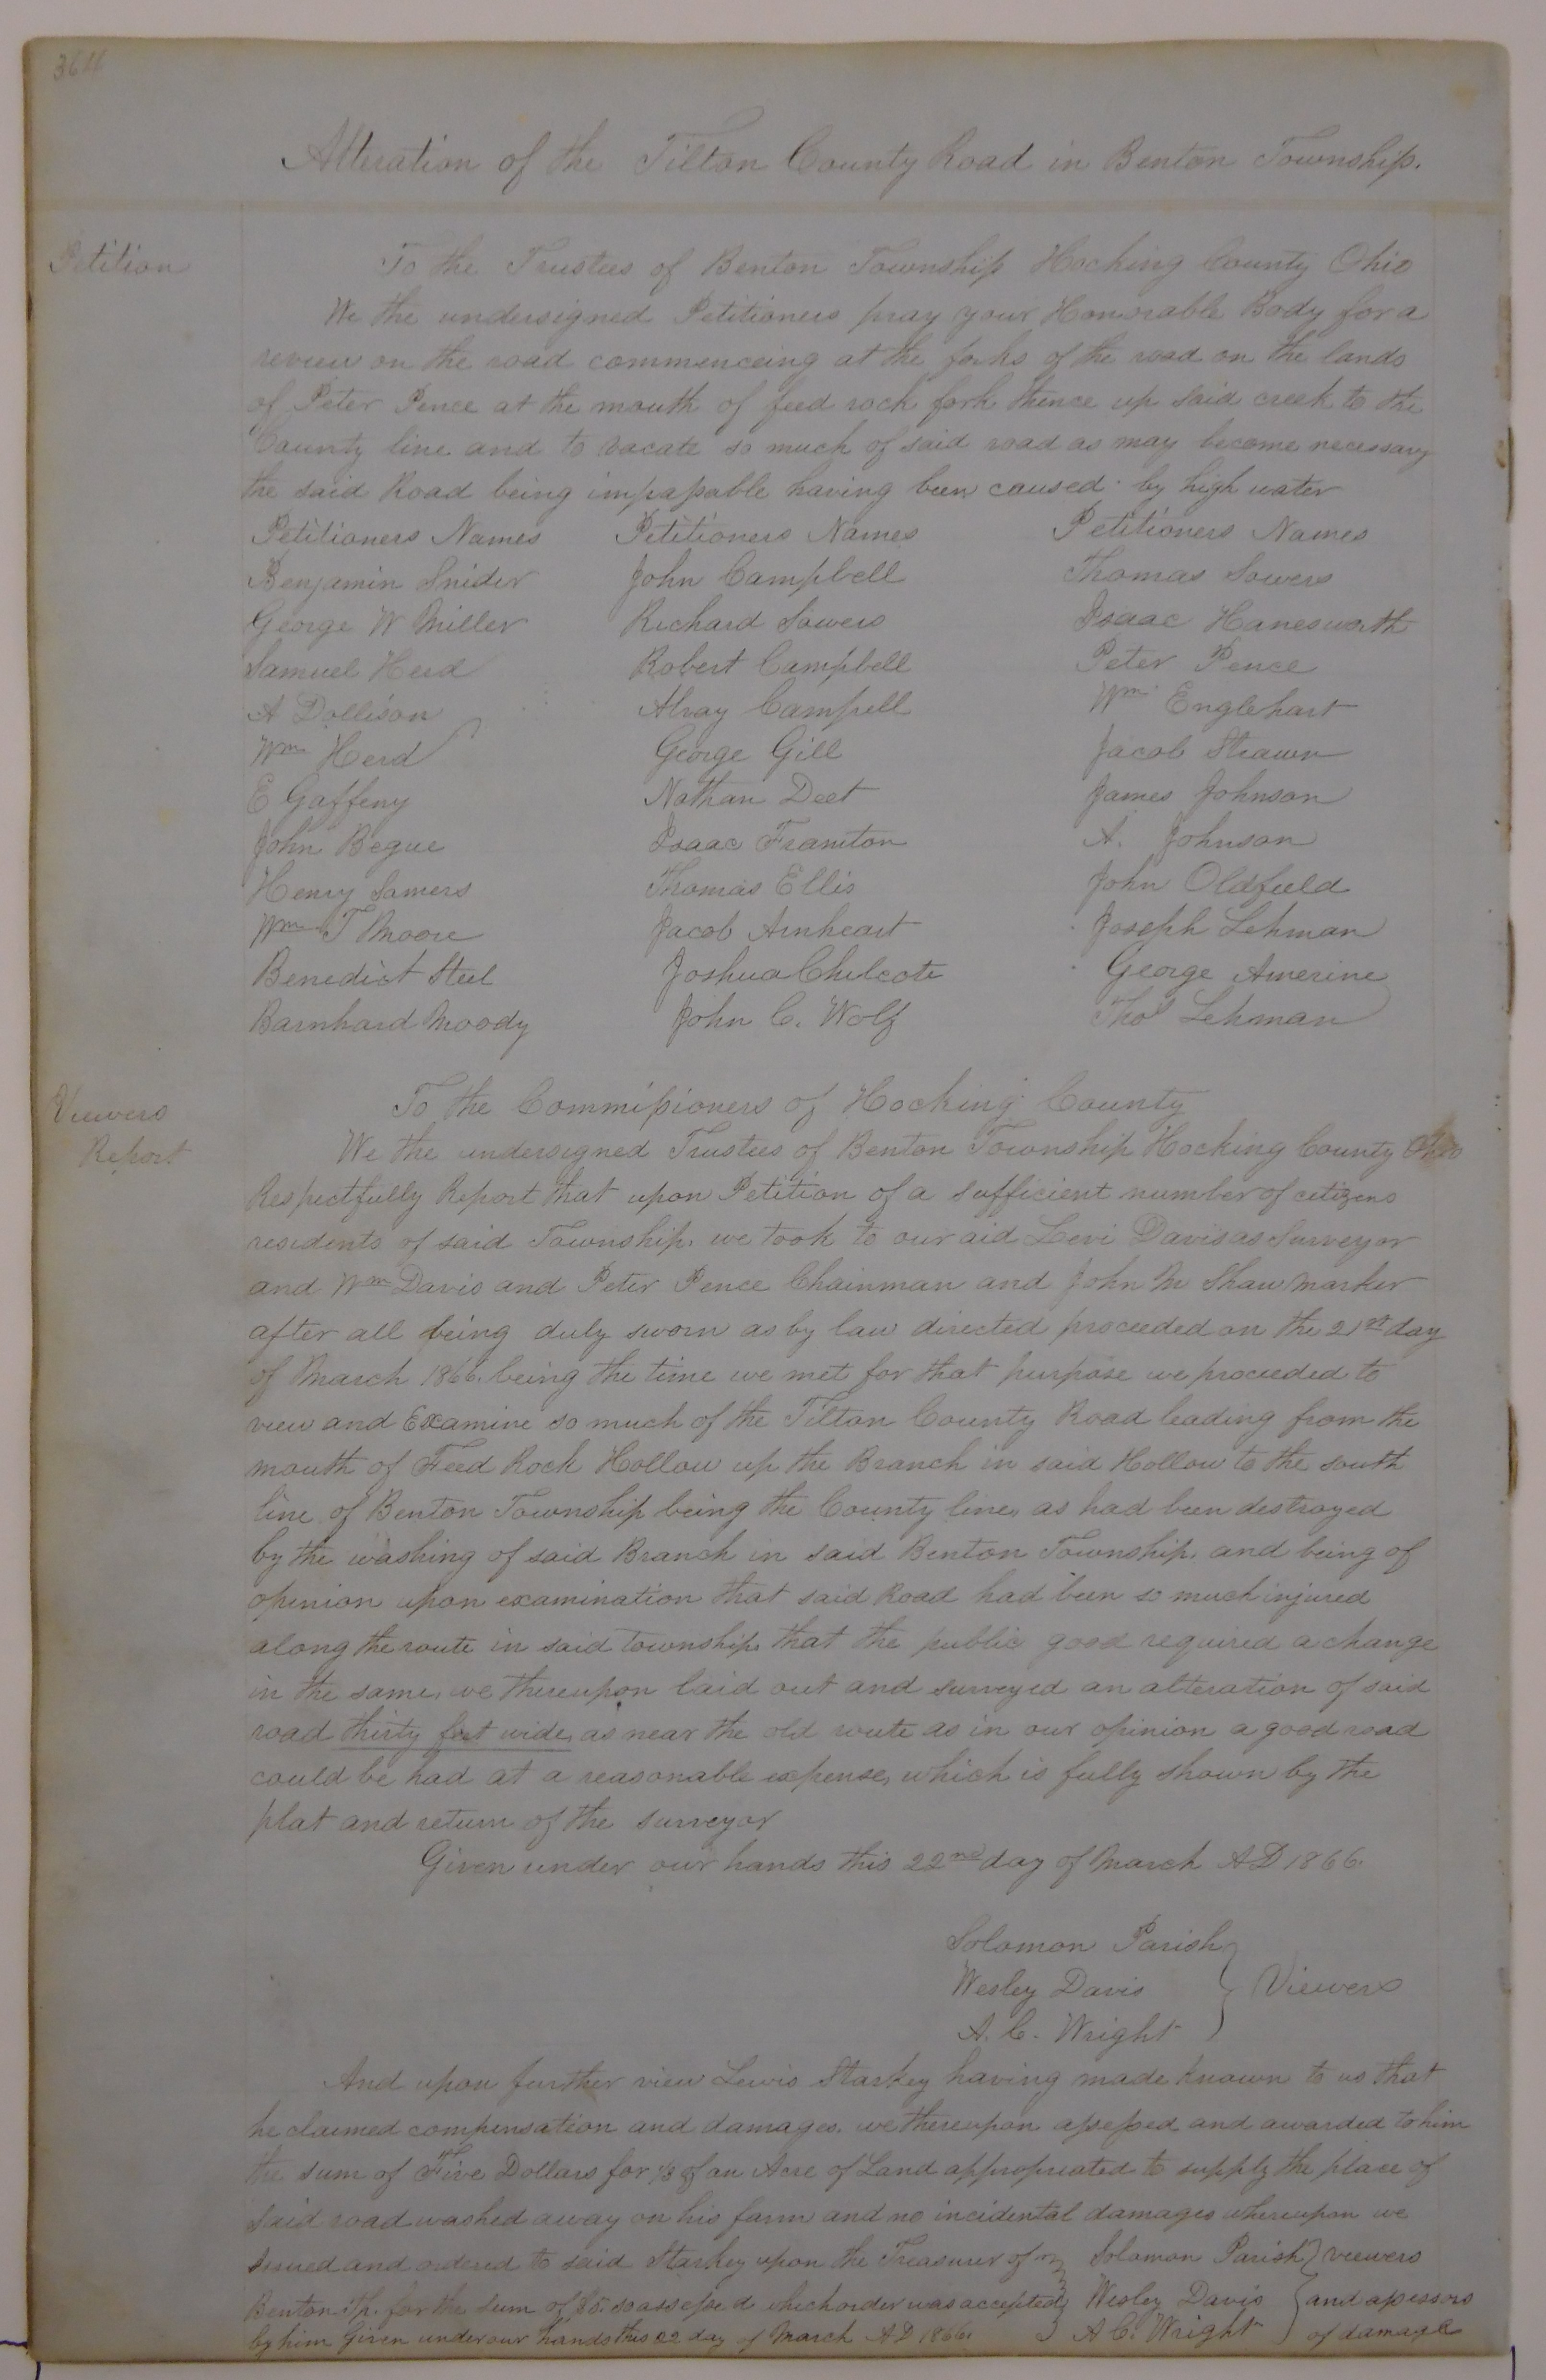 364
Alteration of the Tilton County Road in Benton Township.
Petition
To the Trustees of Benton Township Hocking County Ohio
We the undersigned Petitioners pray your Honorable Body for a
review on the road commenceing at the forks of the road on the lands
of Peter Pence at the mouth of feed rock fork thence up said creek to the
County line and to vacate so much of said road as may become necessary
the said Road being impassable having been caused by high water
Petitioners Names Petitioners Names Petitioners Names
Benjamin Snider John Campbell Thomas Sowers
George W Miller Richard Sowers Isaac Hanesworth
Samuel Herd Robert Campbell Peter Pence
A Dollison Campell Wm Englehart
Wm Herd George Gill Jacob Strawn
E Gaffeny Nathan Deet James Johnson
John Begue Isaac Framton A. Johnson
Henry Samers Thomas Ellis John Oldfield
Wm T Moore Jacob Arnheart Joseph Lehman
Benedict Steel Joshua Chilcote George Amerine
Barnhard Moody John C. Wolf Thos Lehman
Viewers
Report
To the Commissioners of Hocking County
We the undersigned Trustees of Benton Township Hocking County Ohio
Respectfully Report that upon Petition of a sufficient number of citizens
residents of said Township. we took to our aid Levi Davis as Surveyor
and Wm Davis and Peter Pence Chainman and John M Shaw marker
after all being duly sworn as by law directed proceeded on the 21st day
of March 1866. being the time we met for that purpose we proceeded to
view and Examine so much of the Tilton County Road leading from the
mouth of Feed Rock Hollow up the Branch in said Hollow to the south
line of Benton Township being the County line, as had been destroyed
by the washing of said Branch in said Benton Township. and being of
opinion upon examination that said Road had been so much injured
along the route in said township. that the public good required a change
in the same, we thereupon laid out and surveyed an alteration of said
road thirty feet wide, as near the old route as in our opinion a good road
could be had at a reasonable expense, which is fully shown by the
plat and return of the surveyor
Given under our hands this 22nd day of March AD 1866.
Solomon Parish
Wesley Davis Viewers
A. C. Wright
And upon further view Lewis Starkey having made known to us that
he claimed compensation and damages. we thereupon assessed and awarded to him
the sum of Five Dollars for 1/3 of an Acre of Land appropriated to supply the place of
said road washed away on his farm and no incidental damages whereupon we
Issued and ordered to said Starkey upon the Treasurer of Solomon Parish viewers
Benton Tp. for the sum of so assessed which order was accepted Wesley Davis and assessors
by him Given under our hands this 22 day of March AD 1866. A C. Wright of damage